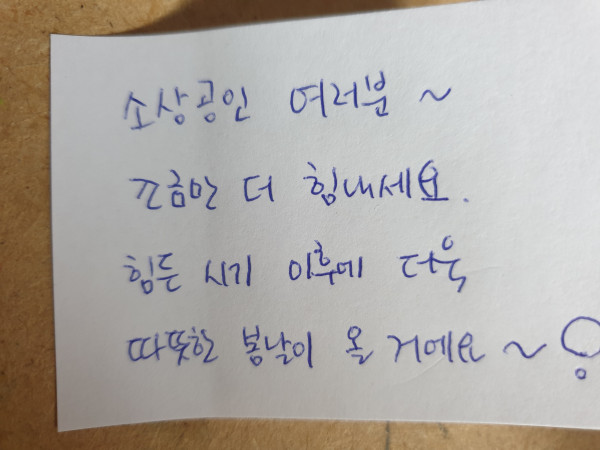 소상공인 여러분 ~
조금만 더 힘내세요.
힘든 시기 이후에 더욱
따뜻한 봄날이 올 거에요 ~